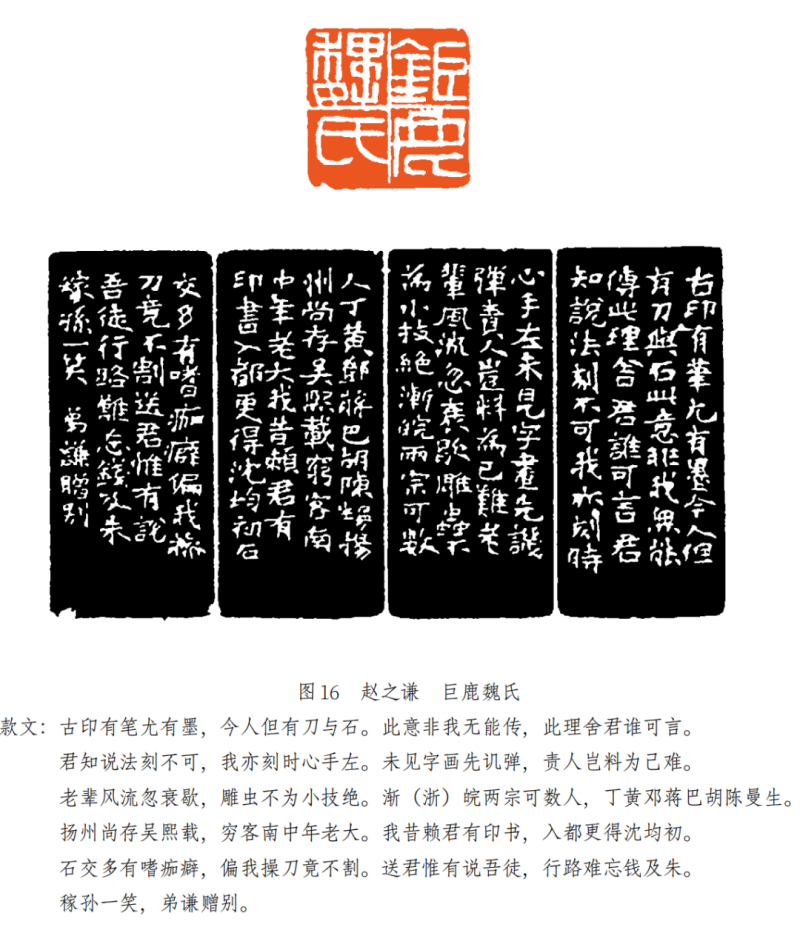 鉅鹿
魏氏
古印有筆尤有墨今人但
有刀與石此意非我無能
傳此理舍君誰可言君
知說法刻不可我亦刻時
心手左未見字畫先譏
彈責人豈料為己難老
輩風流忽衰歇雕蟲不
為小技絕漸皖兩宗可數
人丁黃鄧蔣巴胡陳曼生揚
州尚存吳熙載窮客南
中年老大我昔賴君有
印書入都更得沈均初石
交多有嗜痂癖偏我操
刀竟不割送君惟有說
吾徒行路難忘錢及朱
稼孫一笑 弟謙贈別
图16 赵之谦 巨鹿魏氏
款文：古印有笔尤有墨，今人但有刀与石。此意非我无能传，此理舍君谁可言。
君知说法刻不可，我亦刻时心手左。未见字画先讥弹，责人岂料为己难。
老辈风流忽衰歇，雕虫不为小技绝。渐（浙）皖两宗可数人，丁黄邓蒋巴胡陈曼生。
扬州尚存吴熙载，穷客南中年老大。我昔赖君有印书，入都更得沈均初。
石交多有嗜痂癖，偏我操刀竟不割。送君惟有说吾徒，行路难忘钱及朱。
稼孙一笑，弟谦赠别。